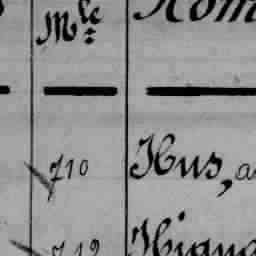 Mle Nom
710 Hus, a
712